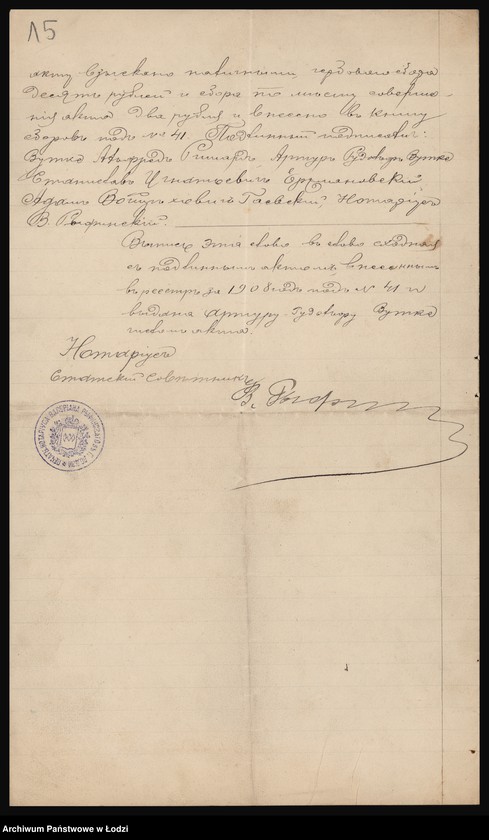 15
акту взыскано наличными гербоваго сбора
десять рублей и сбора по числу соверше-
нія акта два рубля и внесено въ книгу
сборовъ подъ № 41. Подлинный подписали:
Вутке Альфредъ Ришардъ, Артуръ Гудовръ Вутке
Станиславъ Игнатьевичъ
Адамъ Войцеховичъ Гаевскій. Нотаріусъ
В. Рыфинскій.
Выпись эта слово въ слово сходная
съ подлиннымъ актомъ, внесеннымъ
въ реестръ за 1908 годъ подъ № 41 и
выдана Артуру-Гудовру Вутке
Нотаріусъ
Статскій Совѣтникъ
В.
Archiwum Państwowe w Łodzi